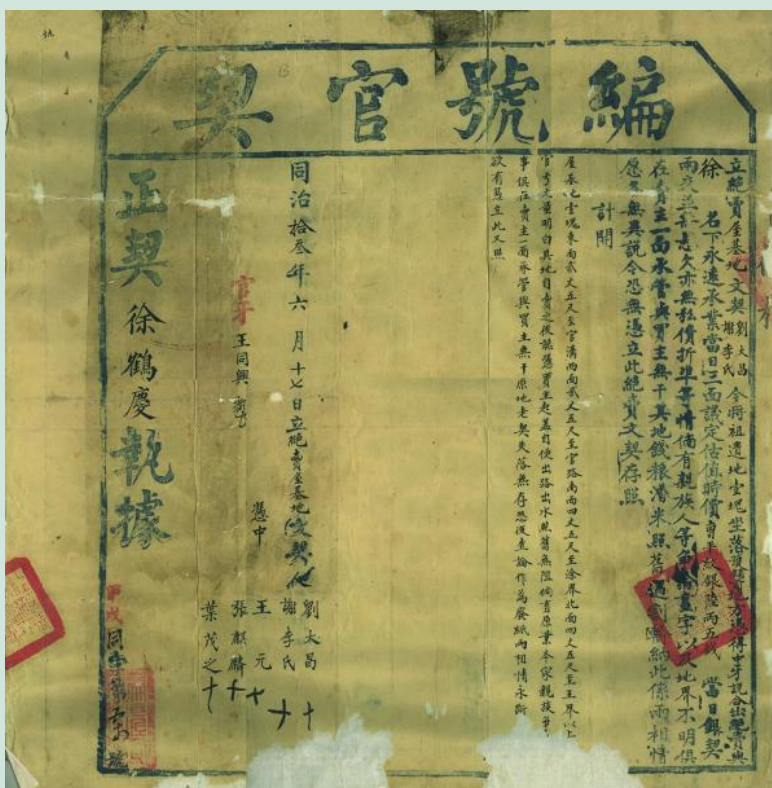 編號官契
立絕賣屋基地文契劉大昌
謝李氏
今將祖遺地壹塊坐落
地方憑得中牙說合出絕賣與
徐 名下永遠承業當日三面議定估值時價曹平紋銀陸兩五錢 當日銀契
兩交並無意欠亦無私債折準等情倘有親族人等爭論畫字以及地界不明俱
在賣主一面承管與買主無干其地錢粮漕米照舊過割完納此係兩相情
愿各無異說今恐無憑立此絕賣文契存照
計開
屋基地壹塊東面貳丈五尺至官溝西面貳丈五尺至官路南面四丈五尺至徐界北面四丈五尺至王界以上
官弓丈量明白其地自賣之後聽憑買主起蓋自便出路出水照舊無阻倘有原業本家親族爭
事俱在賣主一面承管與買主無干原地老契失落無存恐後查論作為廢紙兩相情永斷
欲有憑立此又照
同治拾叁年六月十七日立絕賣屋基地文契人
劉大昌
謝李氏
憑中
王元
張麒麟
葉茂之
官牙 王同興
正契 徐鶴慶 執據
甲戌同字第 號
號